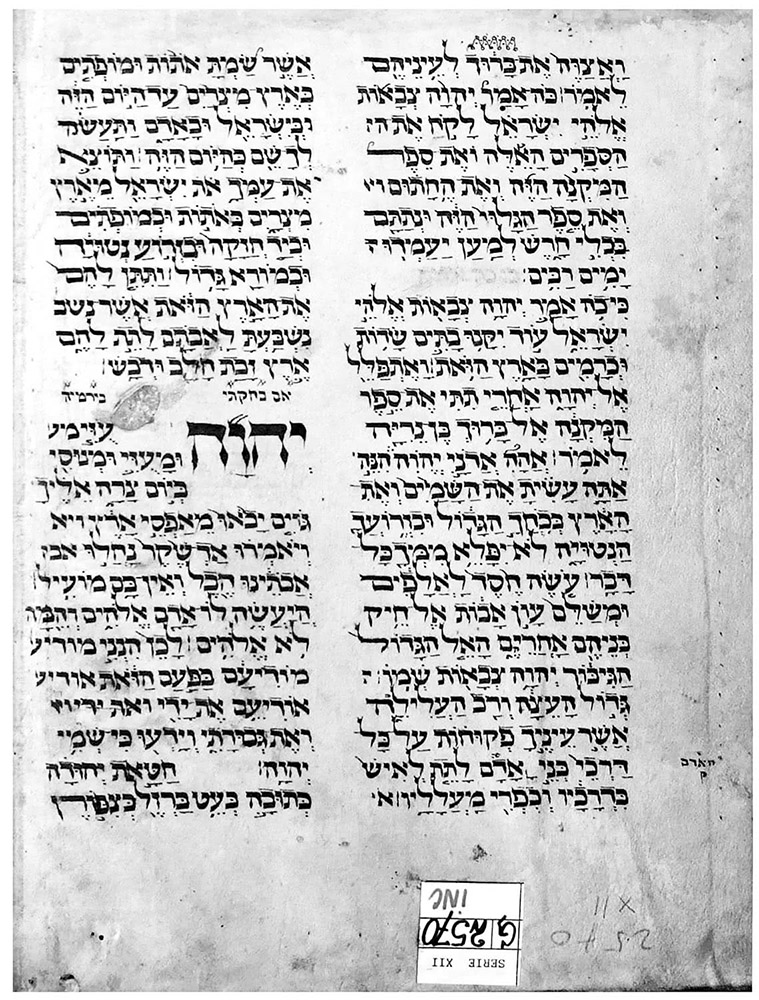 ואצוה את ברוך לעיניהם
לאמר׃ כה אמר יהוה צבאות
אלהי ישראל לקח את הי
הספרים האלה ואת ספר
המקנה הזה ואת החתום וי
ואת ספר הגלוי הזה ונתתם
בכלי חרש למען יעמדו י
ימים רבים׃
כי כה אמר יהוה צבאות אלהי
ישראל עוד יקנו בתים שדות
וכרמים בארץ הזאת׃ ואתפלל
אל יהוה אחרי תתי את ספר
המקנה אל ברוך בן נריה
לאמר׃ אהה אדני יהוה הנה
אתה עשית את השמים ואת
הארץ בכחך הגדול ובזרועך
הנטויה לא יפלא ממך כל
דבר׃ עשה חסד לאלפים
ומשלם עון אבות אל חיק
בניהם אחריהם האל הגדול
הגבור יהוה צבאות שמו׃
גדול העצה ורב העליליה
אשר עיניך פקוחות על כל
דרכי בני אדם לתת לאיש
כדרכיו וכפרי מעלליו׃ א
האדם
ק
אשר שמת אתות ומופתים
בארץ מצרים עד היום הזה
ובישראל ובאדם ותעשה
לך שם כהיום הזה׃ ותוצא
את עמך את ישראל מארץ
מצרים באתות ובמופתים
וביד חזקה ובאזרוע נטויה
ובמורא גדול׃ ותתן להם
את הארץ הזאת אשר נשב
נשבעת לאבתם לתת להם
ארץ זבת חלב ודבש׃
אם בחקתי בירמיה
יהוה עזי ומע
ומעזי ומנוסי
ביום צרה אליך
גוים יבאו מאפסי ארץ ויא
ויאמרו אך שקר נחלו אב
אבתינו הבל ואין בם מועיל׃
היעשה לו אדם אלהים והמה
לא אלהים׃ לכן הנני מודיע
מודיעם בפעם הזאת אודיע
אודיעם את ידי ואת
ואת גבורתי וידעו כי שמי
יהוה׃ חטאת יהודה
כתובה בעט ברזל בצפורן
INC
G 2570
SERIE XII
XII
2570